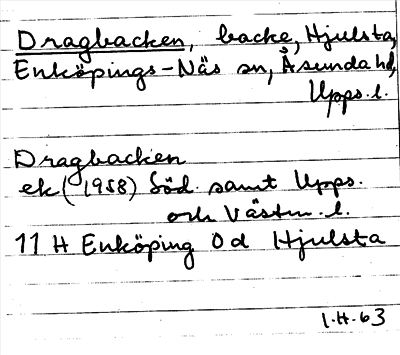 Dragbacken, backe, Hjulsta,
Enköpings-Näs sn, Åsunda hd,
Upps. l.
Dragbacken
ek (1958) Söd. samt Upps.
och Västm. l.
11 H Enköping 0 d Hjulsta
1.H.63